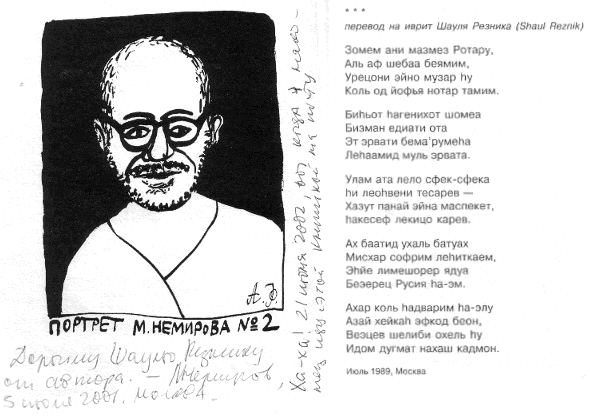 А.Ф.
ПОРТРЕТ М.НЕМИРОВА №2
Дорогому Шаулю Резнику
от автора. — МНемиров,
5 июля 2001. Москва.
Ха-ха! 21 июня 2002, вот когда я нако-
нец иду с этой книжкой на почту
* * *
перевод на иврит Шауля Резника (Shaul Reznik)
Зомем ани мазмез Ротару,
Аль аф шебаа беямим,
Урецони эйно музар hу
Коль од йофья нотар тамим.
Биhьот hагенихот шомеа
Бизман едиати ота
Эт эрвати бема'румеhа
Леhаамид муль эрвата.
Улам ата лело сфек-сфека
hи леоhвени тесарев —
Хазут панай эйна маспекет,
hакесеф лекицо карев.
Ах баатид ухаль батуах
Мисхар софрим леhиткаем,
Эhйе лимешорер ядуа
Беэрец Русия hа-эм.
Ахар коль hадварим hа-элу
Азай хейкаh эфкод беон,
Веэцев шелиби охель hу
Идом дугмат нахаш кадмон.
Июль 1989, Москва